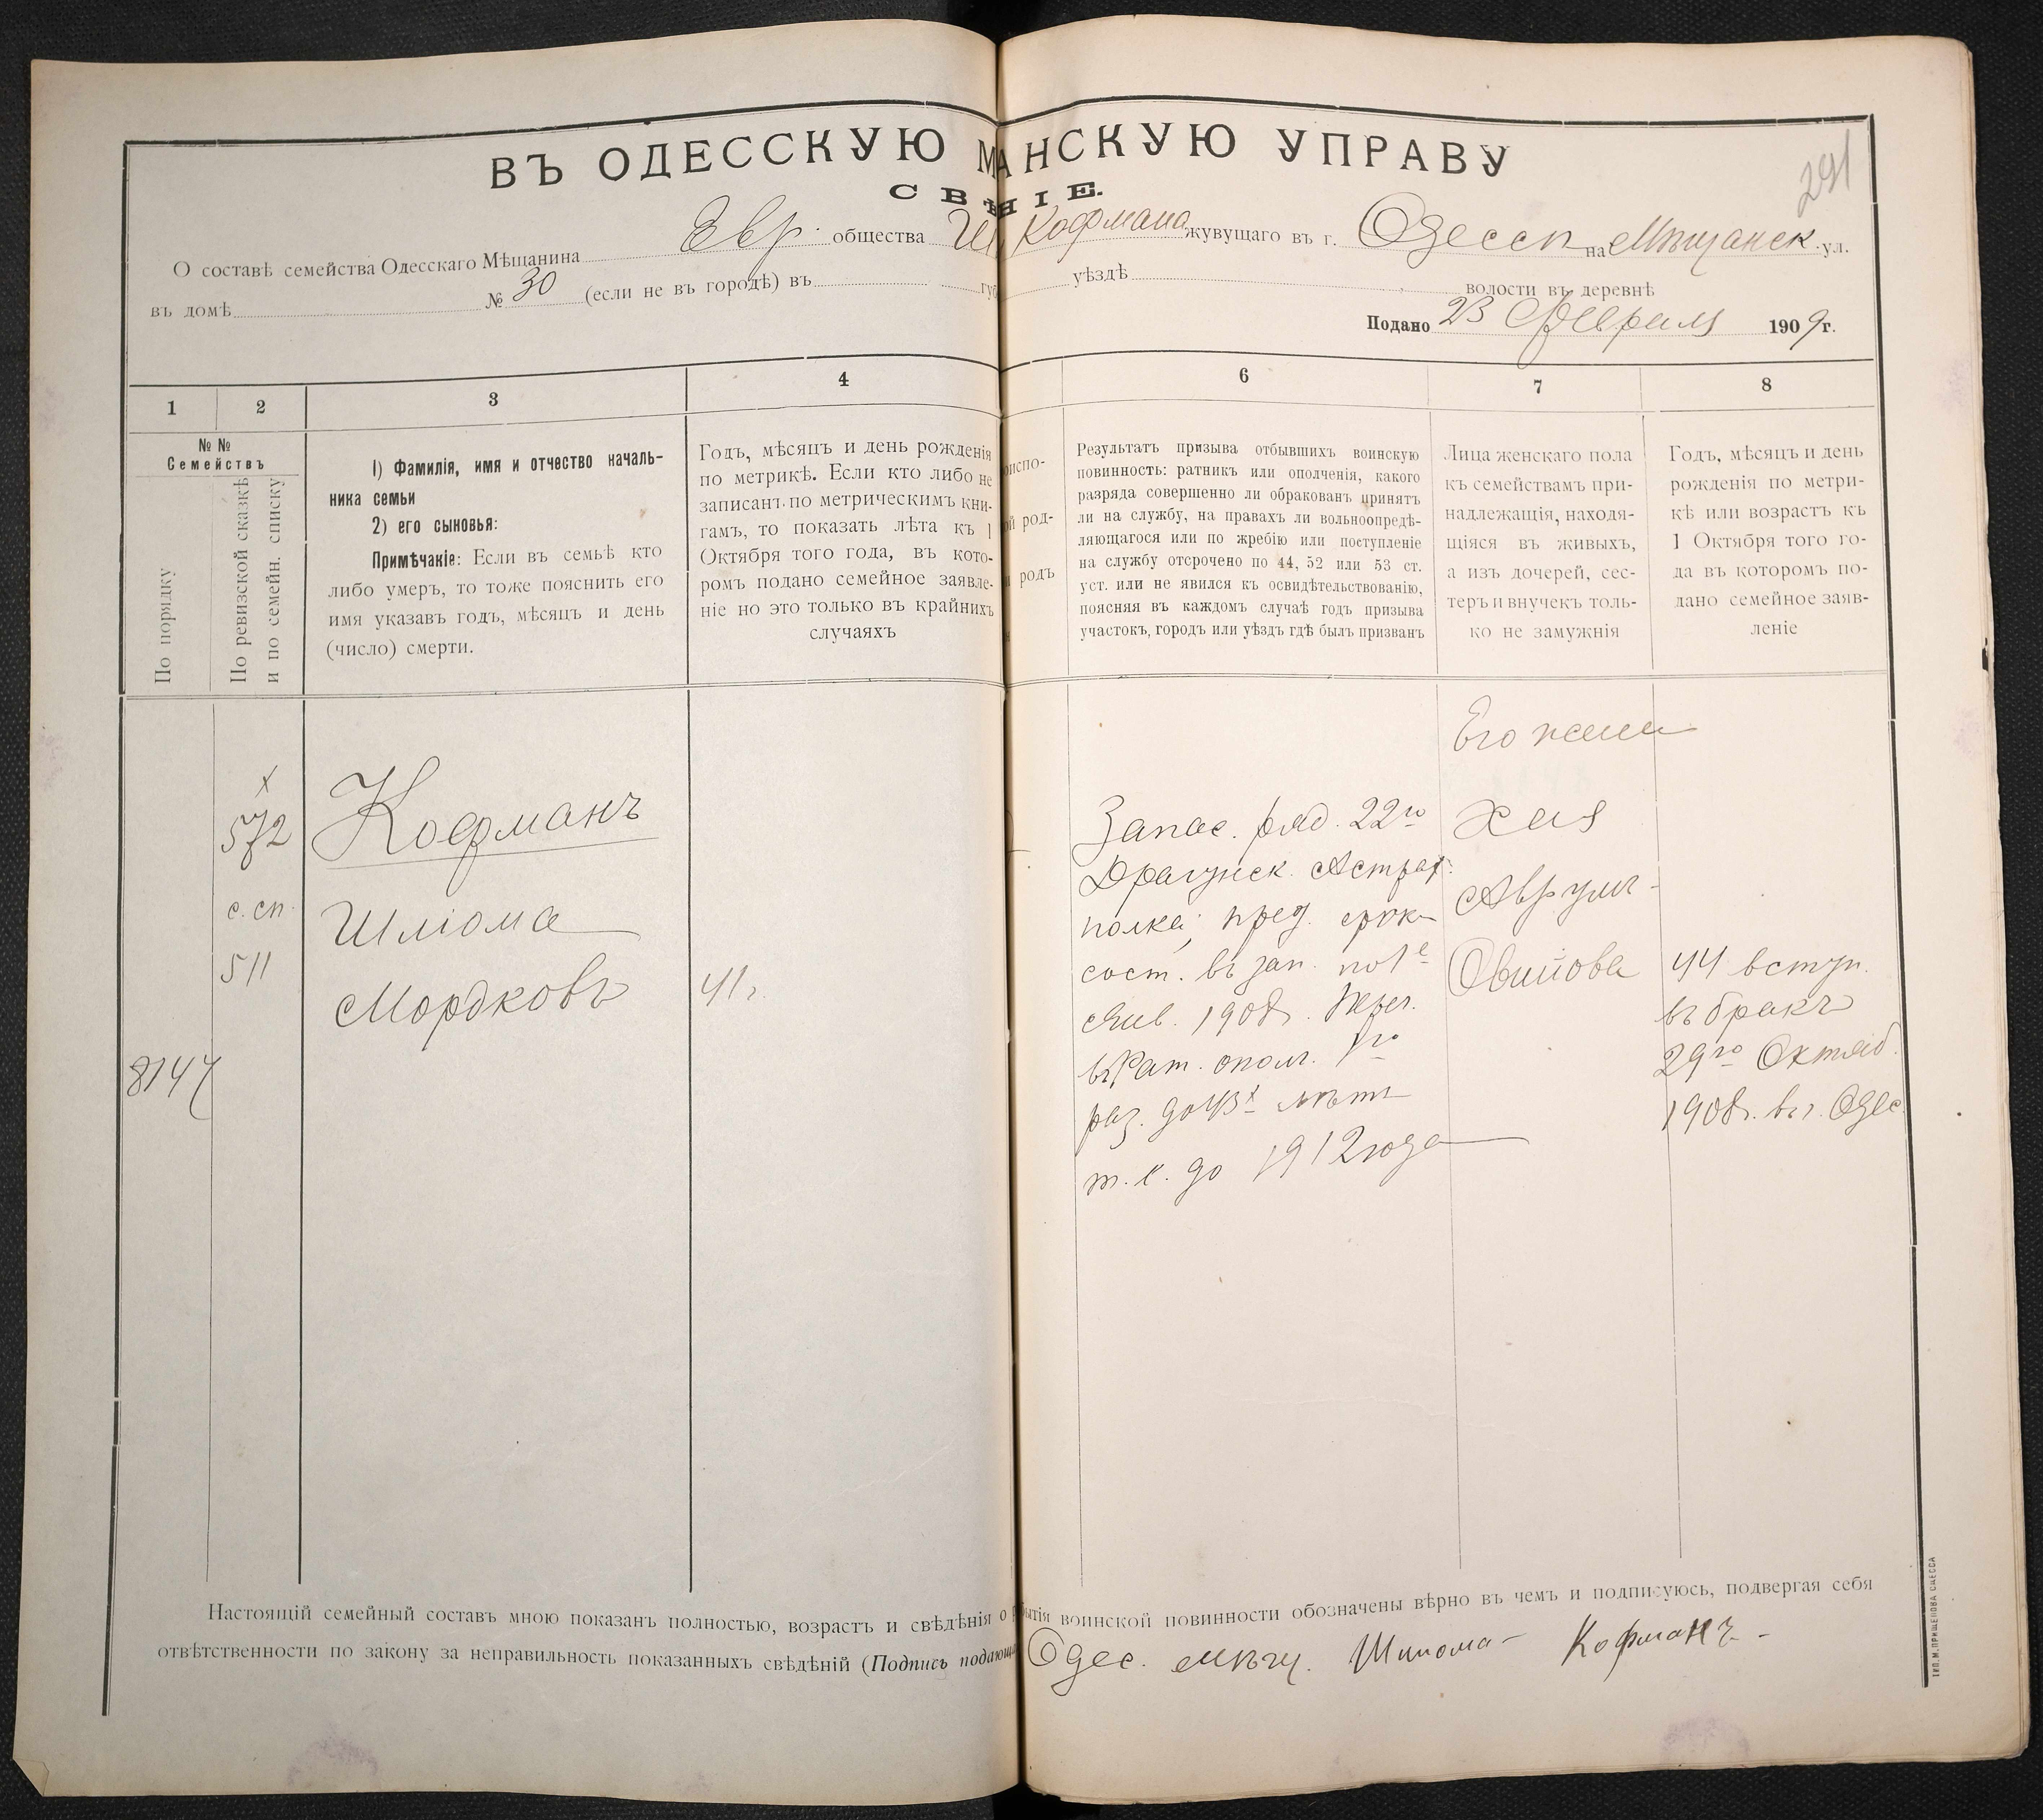 291
ВЪ ОДЕССКУЮ М АНСКУЮ УПРАВУ
СВ НІЕ.
О составѣ семейства Одесскаго Мѣщанина Евр. общества Кофмана жувущаго въ г. Одессп на Мѣщанск. ул.
въ домѣ № 30 (если не въ городѣ) въ губ уѣздѣ волости въ деревнѣ
Подано 23 Февраля 1909 г.
1 2 3 4 6 7 8
№ №
Семействъ
По порядку
По ревизской сказкѣ
и по семейн. списку
1) Фамилія, имя и отчество началь-
ника семьи
2) его сыновья:
Примѣчаніе: Если въ семьѣ кто
либо умеръ, то тоже пояснить его
имя указавъ годъ, мѣсяцъ и день
(число) смерти.
Годъ, мѣсяцъ и день рожденія
по метрикѣ. Если кто либо не
записанъ по метрическимъ кни-
гамъ, то показать лѣта къ 1
Октября того года, въ кото-
ромъ подано семейное заявле-
ніе но это только въ крайнихъ
случаяхъ
испо-
ой род-
и родъ
Результатъ призыва отбывшихъ воинскую
повинность: ратникъ или ополченія, какого
разряда совершенно ли обракованъ принятъ
ли на службу, на правахъ ли вольноопредѣ-
ляющагося или по жребію или поступленіе
на службу отсрочено по 44, 52 или 53 ст.
уст. или не явился къ освидѣтельствованію,
поясняя въ каждомъ случаѣ годъ призыва
участокъ, городъ или уѣздъ гдѣ былъ призванъ
Лица женскаго пола
къ семействамъ при-
надлежащія, находя-
щіяся въ живыхъ,
а изъ дочерей, сес-
теръ и внучекъ толь-
ко не замужнія
Годъ, мѣсяцъ и день
рожденія по метри-
кѣ или возрастъ къ
1 Октября того го-
да въ которомъ по-
дано семейное заяв-
леніе
8147
х
572
с. сп.
511
Кофманъ
Шліома
Мордковъ
41 г.
Запас. ряд. 22го
Драгунск. Астрах.
полка, пред. срок
сост. въ зап. по 1е
Янв. 1908 г.
въ Рат. опол. 1го
раз. до 43х лѣтъ
т. е. до 1912 года
Его жена
Хая
Аврум-
Овшіова
44 вступ.
въ бракъ
29го Октяб.
1908 г. въ г. Одес.
Настоящій семейный составъ мною показанъ полностью, возрастъ и свѣдѣнія о бытія воинской повинности обозначены вѣрно въ чемъ и подписуюсь, подвергая себя
отвѣтственности по закону за неправильность показанныхъ свѣдѣній (Подпись подающ Одес. мѣщ. Шлиома Кофманъ
ТИП. М. ПРИЩЕПОВА ОДЕССА